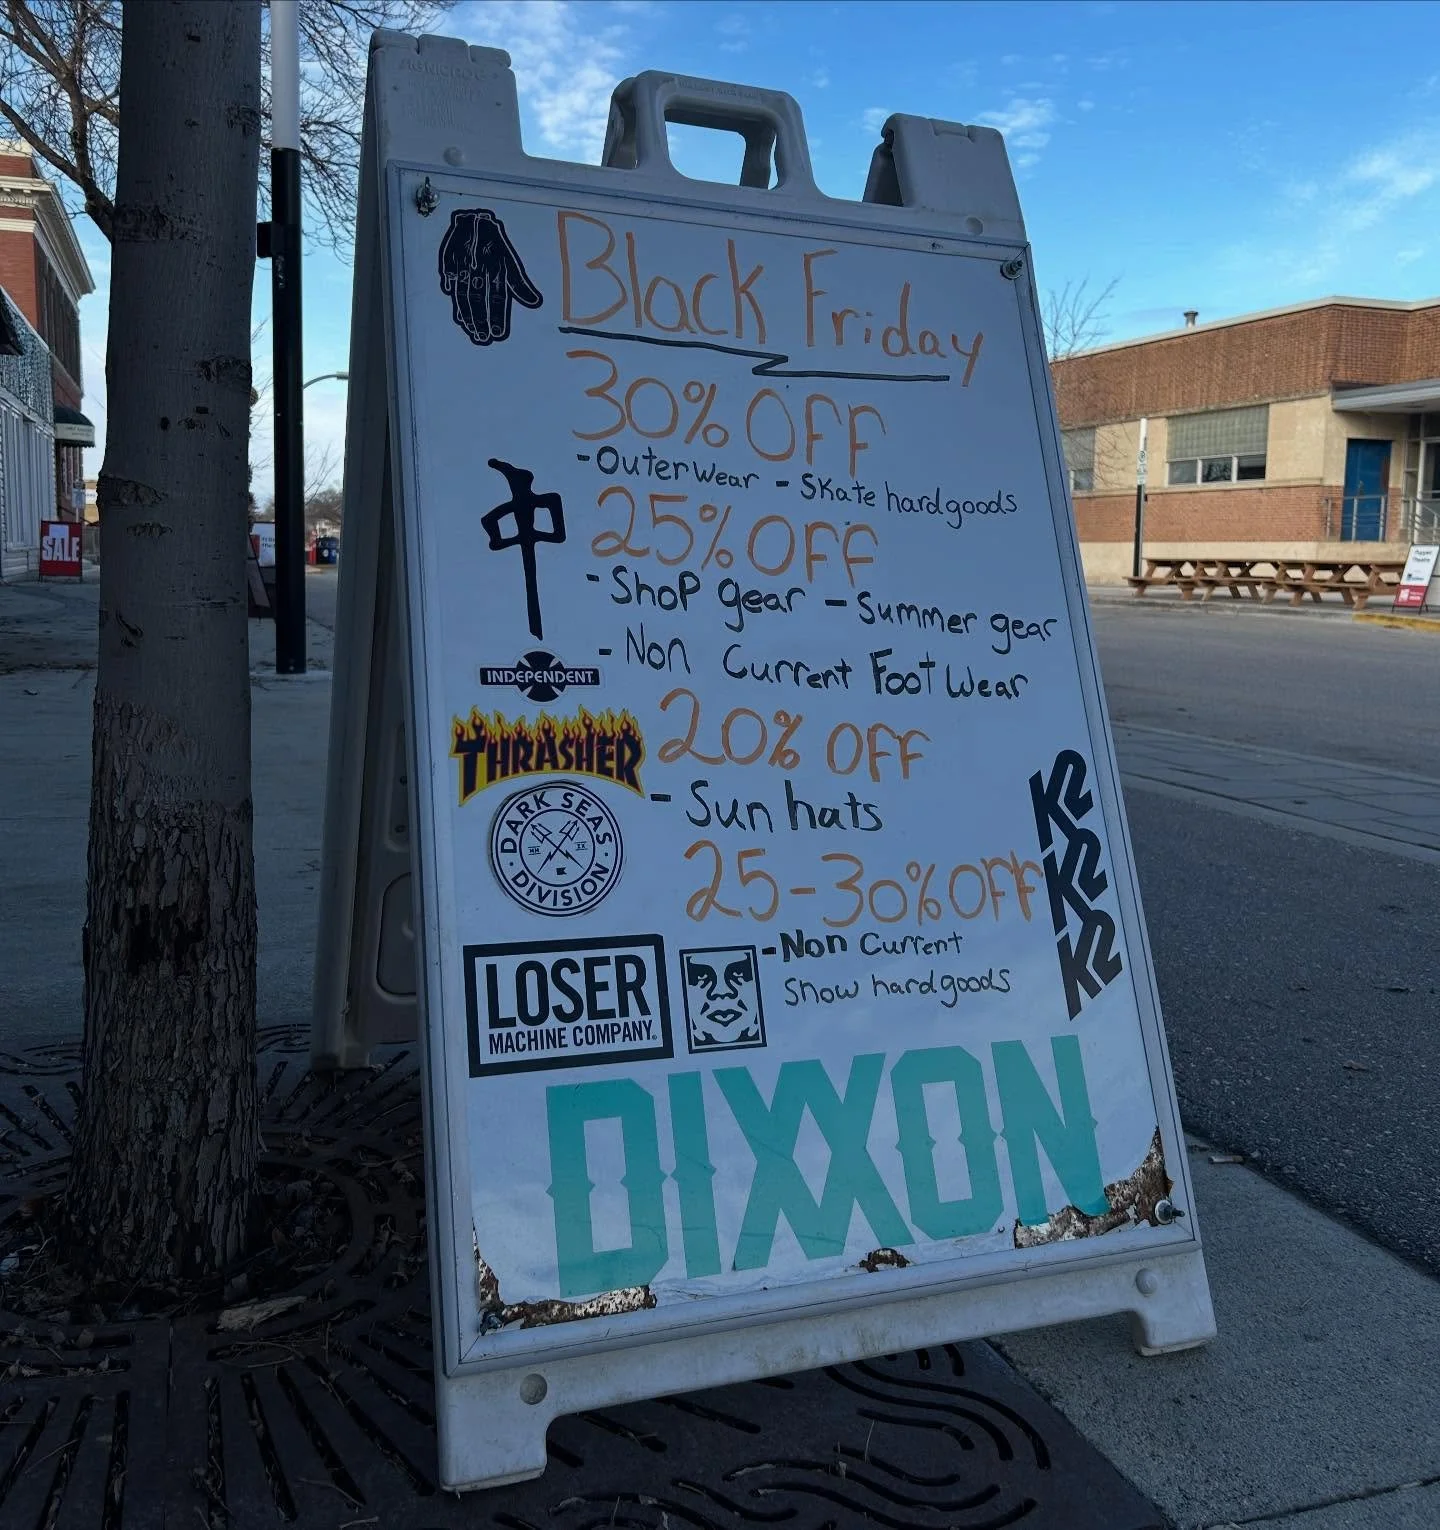 Black Friday
30% OFF
-Outerwear - Skate hardgoods
25% OFF
-Shop gear - Summer gear
- Non Current Footwear
INDEPENDENT
THRASHER
20% OFF
- Sun hats
DARK SEAS
DIVISION
25-30% OFF
-Non Current
Snow hardgoods
K2
K2
K2
LOSER
MACHINE COMPANY.
DIXXON
SALE